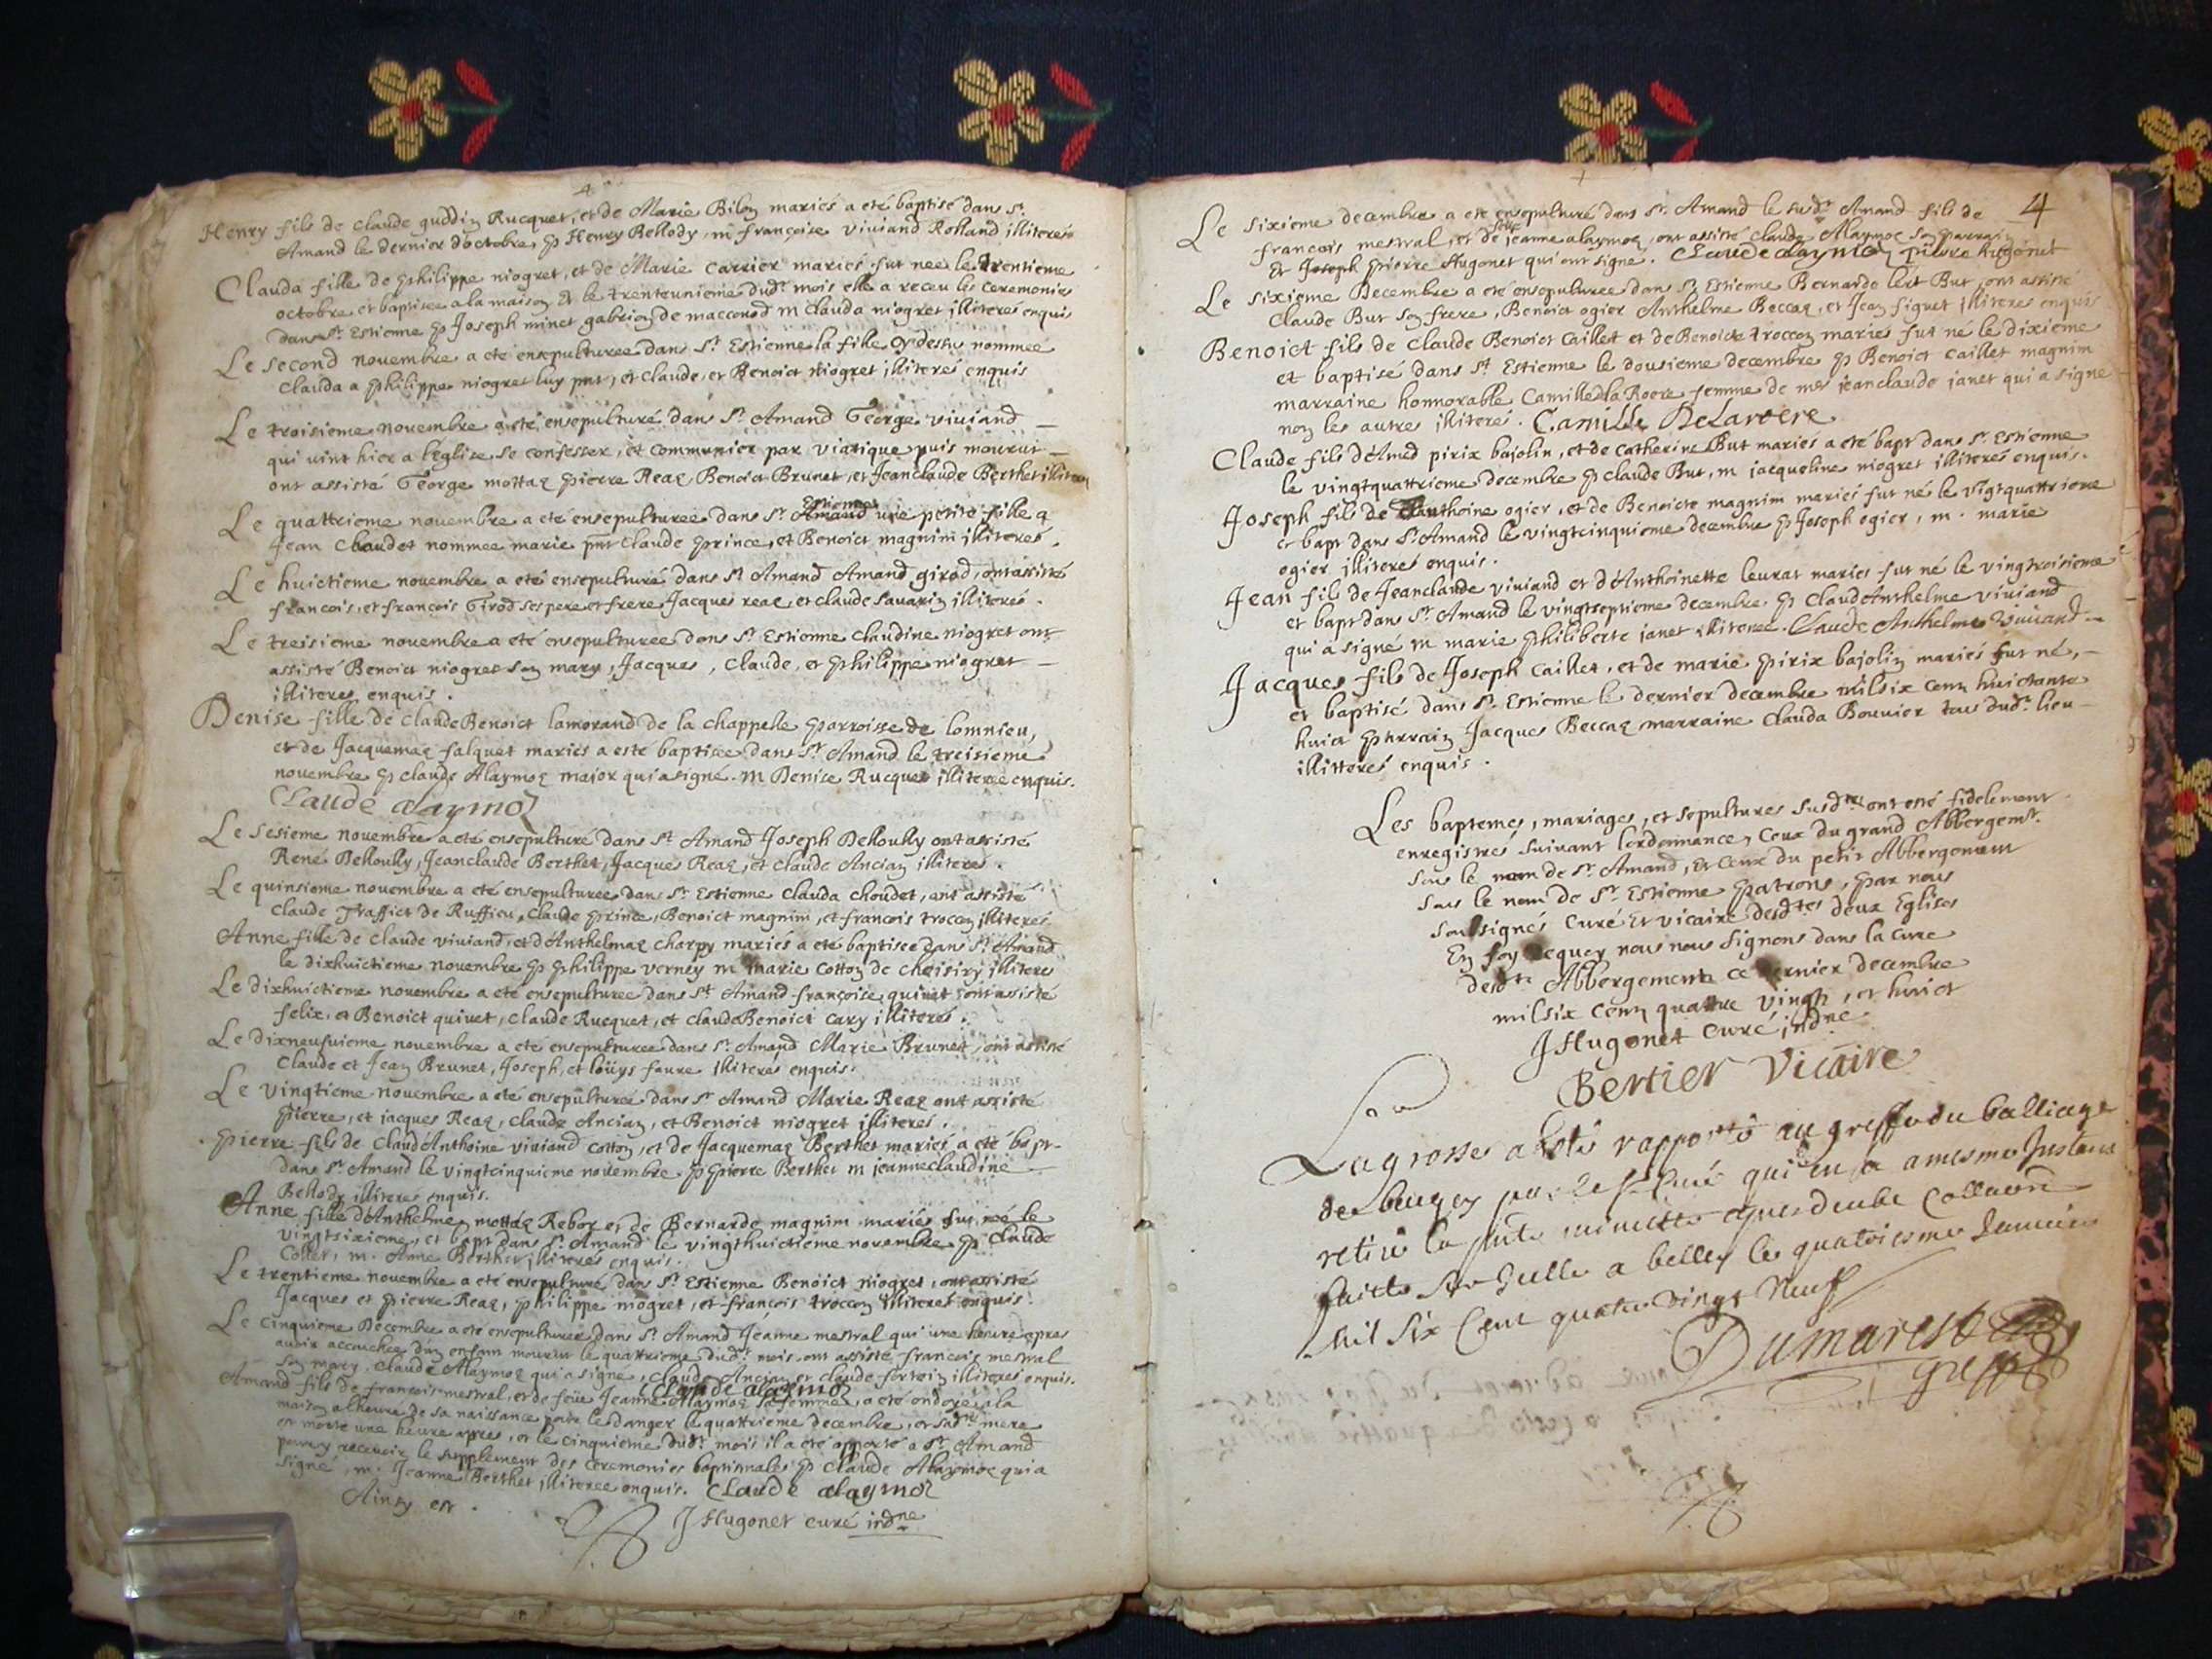 4
Henry fils de Claude guddin Rucquet, et de Marie Bilon mariés a eté baptisé dans St
Amand le dernier d'octobre, p Henry Bellody, m françoise viviand Rolland illiterés
Clauda fille de philippe niogret, et de Marie Carrier mariés fut nee le trentieme
octobre et baptisee a la maison et le trenteunieme dudt mois elle a receu les ceremonies
dans St Estienne p Joseph minet gabrion de macconod m Clauda niogret illiterés enquis
Le second novembre a eté ensepulturee dans St Estienne la fille cy dessus nommee
Clauda a philippe niogret luy pnt, et Claude, et Benoict niogret illiterés enquis
Le troisieme novembre a eté ensepulturé dans St Amand George viviand
qui vint hier a l'eglise se confesser, et communier par viatique puis mourut
ont assisté George mottaz pierre Reaz, Benoict Brunet, et Jeanclaude Berthet illiterés
Le quattrieme novembre a eté ensepulturee dans St Amand Estienne une petite fille a
Jean Chaudet nommee marie pnt Claude prince, et Benoict magnim illiterés.
Le huictieme novembre a eté ensepulturé dans St Amand Amand girod, ont assisté
francois, et françois Girod ses pere et frere Jacques reaz et claude savarin illiterés.
Le treisieme novembre a eté ensepulturee dans St Estienne Claudine niogret ont
assisté Benoict niogret son mary, Jacques, Claude, et philippe niogret
illiteres enquis.
Denise fille de Claude Benoict lamorand de la chappelle parroisse de lomnieu,
et de Jacquemaz falquet mariés a esté baptisee dans St Amand le treisieme
novembre p claude Alaymoz major qui a signé. m Denise Rucquet illiteree enquis.
Claude alaymoz
Le sesieme novembre a eté ensepulturé dans St Amand Joseph Dellouly ont assisté
René Dellouly, Jeanclaude Berthet, Jacques Reaz, et Claude Ancian illiteres.
Le quinsieme novembre a eté ensepulturee dans St Estienne Clauda choudet, ont assisté
Claude Traffict de Ruffieu, Claude prince, Benoict magnim, et francois troccon illiterés
Anne fille de Claude viviand, et d'Anthelmaz charpy mariés a eté baptisee dans St Amand
le dixhuictieme novembre p philippe verney m marie cotton de choisiry illiteres
Le dixhuictieme novembre a eté ensepulturee dans St Amand françoise quinet ont assisté
felix, et Benoict quinet, Claude Rucquet, et Claude Benoict Cary illiterés.
Le dixneufuieme novembre a eté ensepulturee dans St Amand Marie Brunet, ont assisté
Claude et Jean Brunet, Joseph, et loüys faure illiterés enquis.
Le vingtieme novembre a eté ensepulturee dans St Amand Marie Reaz ont assisté
pierre, et jacques Reaz, Claude Ancian, et Benoict niogret illiterés.
pierre fils de Claud'Anthoine viviand cotton, et de Jacquemaz Berthet mariés a eté bapt
dans St Amand le vingtcinquieme novembre. p pierre Berthet m jeanneclaudine
Bellody illiteres enquis.
Anne fille d'Anthelme mottaz Reboz et de Bernarde magnim mariés fut né le
vingtsixieme, et bapt dans St Amand le vingthuictieme novembre p Claude
Collet, m. Anne Berthet illiterés enquis.
Le trentieme novembre a eté ensepulturé dans St Estienne Benoict niogret, ont assisté
Jacques et pierre Reaz, philippe niogret, et francois troccon illiterés enquis.
Le cinquieme Decembre a eté ensepulturee dans St Amand Jeanne mestral qui une heure apres
avoir accouchee d'un enfant mourut le quattrieme dudt mois ont assisté francois mestral
son mary, Claude Alaymoz qui a signé, Claude Ancian et claude fertoin illiteres enquis.
Claude alaymoz
Amand fils de francois mestral, et de feüe Jeanne Alaymoz sa femme, a eté ondoyé a la
maison a l'heure de sa naissance pour le danger le quattrieme decembre, et sadte mere
est morte une heure apres, et le cinquieme dudt mois il a eté apporté a St Amand
pour y recevoir le supplement des ceremonies baptismales p Claude Alaymoz qui a
signé, m. Jeanne Berthet illiteree enquis. Claude alaymoz
Ainsy est.
J Hugonet curé indne
4
Le sixieme decembre a eté ensepulturé dans St Amand le susdt Amand fils de
francois mestral, et de feüe jeanne alaymoz, ont assisté Claude Alaymoz son parrain
Et Joseph pierre Hugonet qui ont signé. Claude alaymoz pierre hugonet
Le sixieme Decembre a eté ensepulturee dans St Estienne Bernarde lert But, ont assisté
Claude But son frere, Benoict ogier Anthelme Beccaz, et Jean figuet illiteres enquis
Benoict fils de Claude Benoict Caillet et de Benoicte troccon mariés fut né le dixieme
et baptisé dans St Estienne le dousieme decembre p Benoict Caillet magnim
marraine honnorable Camille la Roere femme de mes jeanclaude janet qui a signé
non les autres illiterés. Camille Delaroere
Claude fils d'Amed pirix bajolin, et de Catherine But mariés a eté bapt dans St Estienne
le vingtquattrieme decembre p claude But, m jacqueline niogret illiterés enquis.
Joseph fils de anthoine ogier, et de Benoicte magnim mariés fut né le vigtquattrieme
et bapt dans St Amand le vingtcinquieme decembre p Joseph ogier, m. marie
ogier illiterés enquis.
Jean fils de Jeanclaude viviand et d'Anthoinette leurat mariés fut né le vingtroisieme
et bapt dans St Amand le vingtseptieme decembre p Claud'Anthelme viviand
qui a signé m marie philiberte janet illiteree. Claude Anthelme Viviand
Jacques fils de Joseph Caillet, et de marie pirix bajolin mariés fut né,
et baptisé dans St Estienne le dernier decembre milsix cent huictante
huict parrain Jacques Beccaz marraine Clauda Bouvier tous dudt lieu
illitterés enquis.
Les baptemes, mariages, et sepultures susdtes ont esté fidelement
enregistrés suivant l'ordonnance, Ceux du grand Abbergemt.
sous le nom de St Amand, et ceux du petit Abbergement
sous le nom de St Estienne patrons, par nous
soussignés curé et vicaire desdtes deux Eglises
En foy dequoy nous nous signons dans la cure
desdte Abbergements ce dernier decembre
milsix cent quattre vingt, et huict
J Hugonet curé indne
Bertier Vicaire
La grosse a esté rapportée au greffe du balliage
de beugey par le Sr Curé qui en a a mesme Instant
retiré la pnte minutte apres deube Collaon
faitte sur Icelle a belley le quatoiesme Janvier
Mil Six Cent quatre vingt Neuf
Dumarest
greff